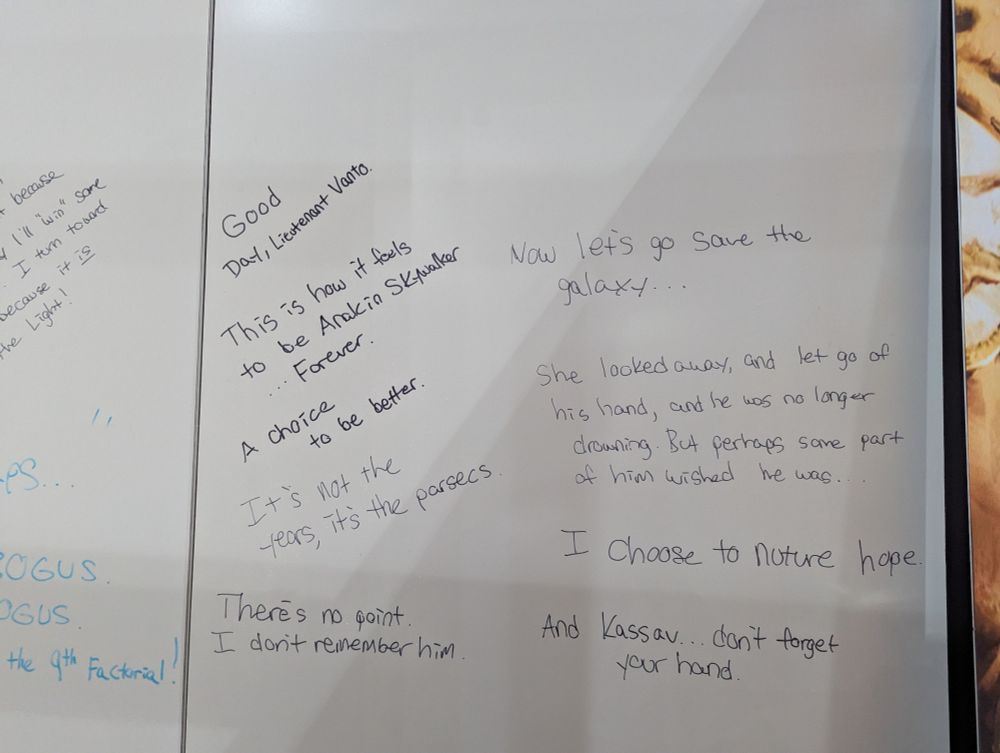 because
I'll "win" some
I turn toward
because it is
the Light!
OGUS.
OGUS.
the 9th Factorial!
Good
Day, Lieutenant Vanto.
This is how it feels
to be Anakin Skywalker
... Forever.
A choice
to be better.
It's not the
years, it's the parsecs.
There's no point.
I don't remember him.
Now let's go save the
galaxy...
She looked away, and let go of
his hand, and he was no longer
drowning. But perhaps some part
of him wished he was...
I choose to nuture hope.
And Kassav... don't forget
your hand.